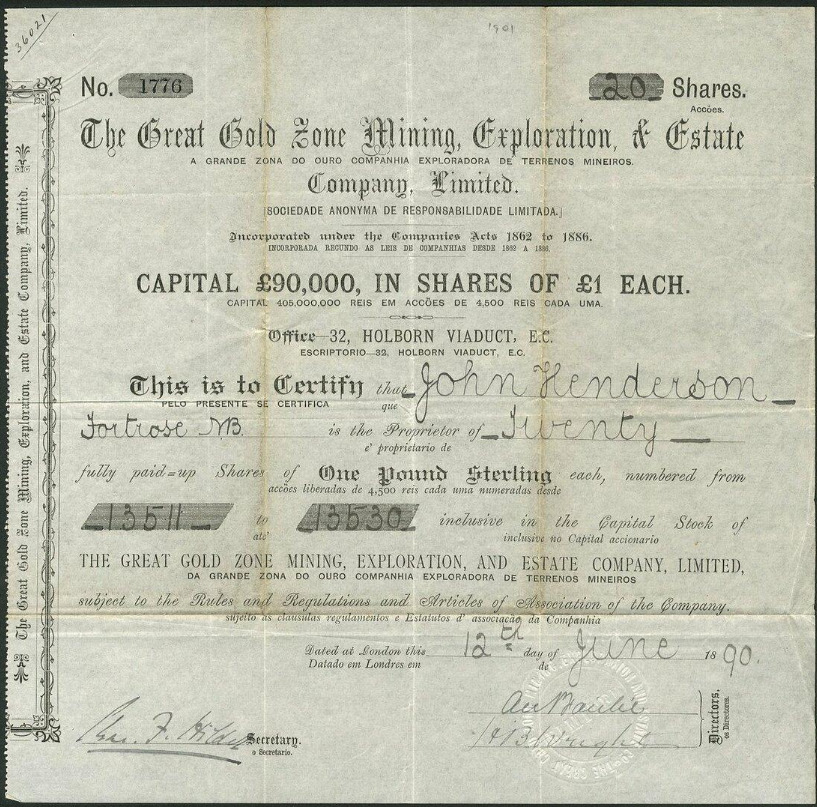 36021
1901
No. 1776
20 Shares.
Accões.
The Great Gold Zone Mining, Exploration, & Estate
A GRANDE ZONA DO OURO COMPANHIA EXPLORADORA DE TERRENOS MINEIROS.
Company, Limited.
[SOCIEDADE ANONYMA DE RESPONSABILIDADE LIMITADA.]
Incorporated under the Companies Acts 1862 to 1886.
INCORPORADA RECUNDO AS LEIS DE COMPANHIAS DESDE 1862 A 1886.
CAPITAL £90,000, IN SHARES OF £1 EACH.
CAPITAL 405.000,000 REIS EM ACCÕES DE 4,500 REIS CADA UMA.
Office—32, HOLBORN VIADUCT, E.C.
ESCRIPTORIO—32, HOLBORN VIADUCT, E.C.
This is to Certify that John Henderson
PELO PRESENTE SE CERTIFICA que
Fortrose NB. is the Proprietor of Twenty
e' proprietario de
fully paid=up Shares of One Pound Sterling each, numbered from
accões liberadas de 4,500 reis cada uma numeradas desde
13511 to 13530 inclusive in the Capital Stock of
ate' inclusive no Capital accionario
THE GREAT GOLD ZONE MINING, EXPLORATION, AND ESTATE COMPANY, LIMITED,
DA GRANDE ZONA DO OURO COMPANHIA EXPLORADORA DE TERRENOS MINEIROS
subject to the Rules and Regulations and Articles of Association of the Company.
sujeito as clausulas regulamentos e Estatutos d' associação da Companhia
Dated at London this 12th day of June 1890.
Datado em Londres em de
Secretary.
o Secretario.
Directors.
os Directores.
The Great Gold Zone Mining, Exploration, and Estate Company, Limited.